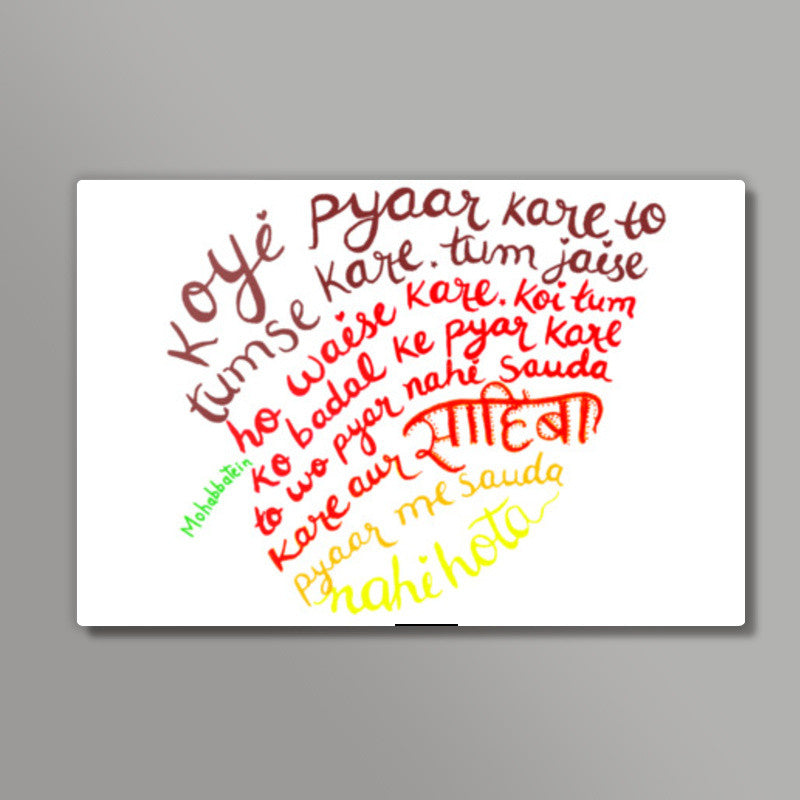 Koyi pyaar kare to
tumse kare. tum jaise
ho waise kare. koi tum
ko badal ke pyar kare
to wo pyar nahi sauda
kare aur साहिबा
pyaar me sauda
nahi hota
Mohabbatein